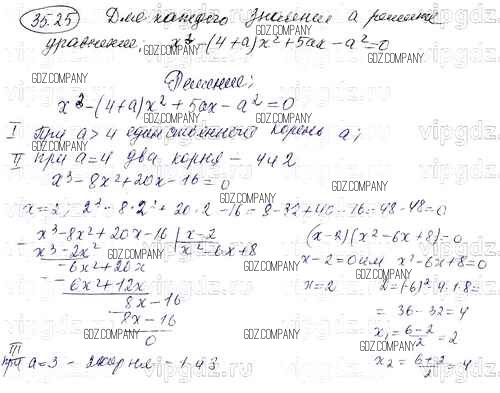 35.25 Для каждого значения а решите
уравнение: x³-(4+a)x²+5ax-a²=0
Решение:
x³-(4+a)x²+5ax-a²=0
I При a>4 единственного корень a;
II при a=4 два корня - 4 и 2
x³-8x²+20x-16=0
x=2, 2³-8·2²+20·2-16=8-32+40-16=48-48=0
x³-8x²+20x-16 | x-2
x³-2x² x²-6x+8
-6x²+20x
-6x²+12x
8x-16
8x-16
0
(x-2)(x²-6x+8)=0
x-2=0 или x²-6x+8=0
x=2 D=(-6)²-4·1·8=
= 36-32=4
x₁=6-2/2=2
x₂=6+2/2=4
III
при a=3 - 2 корня - 1 и 3
GDZ.COMPANY
vipgdz.com